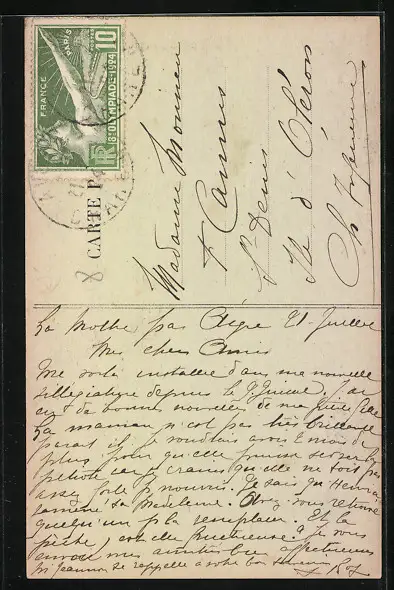 FRANCE
PARIS
POSTES
10
8e OLYMPIADE 1924
RF
CARTE P
8
Madame Monsieur
Camus
St Denis
Ile d'Oléron
Ch Inférieure
La Mothe par Aigre 21 Juillet
Mes chers Amis
Me voilà installée dans ma nouvelle
villégiature depuis le 9 Juillet. J'ai
eu de bonnes nouvelles de ma petite fille
La maman n'est pas très brillante
parait il, je voudrais avoir 2 mois de
plus pour qu'elle puisse sevrer la
petite car je crains qu'elle ne soit pas
assez forte p. nourrir. Je sais qu'Henri a
ramené sa Madeleine. Avez-vous retrouvé
quelqu'un p. la remplacer. Et la
pêche, est-elle fructueuse. Je vous
envoie mes amitiés bien affectueuses
Jeanne se rappelle à votre bon souvenir
Roy